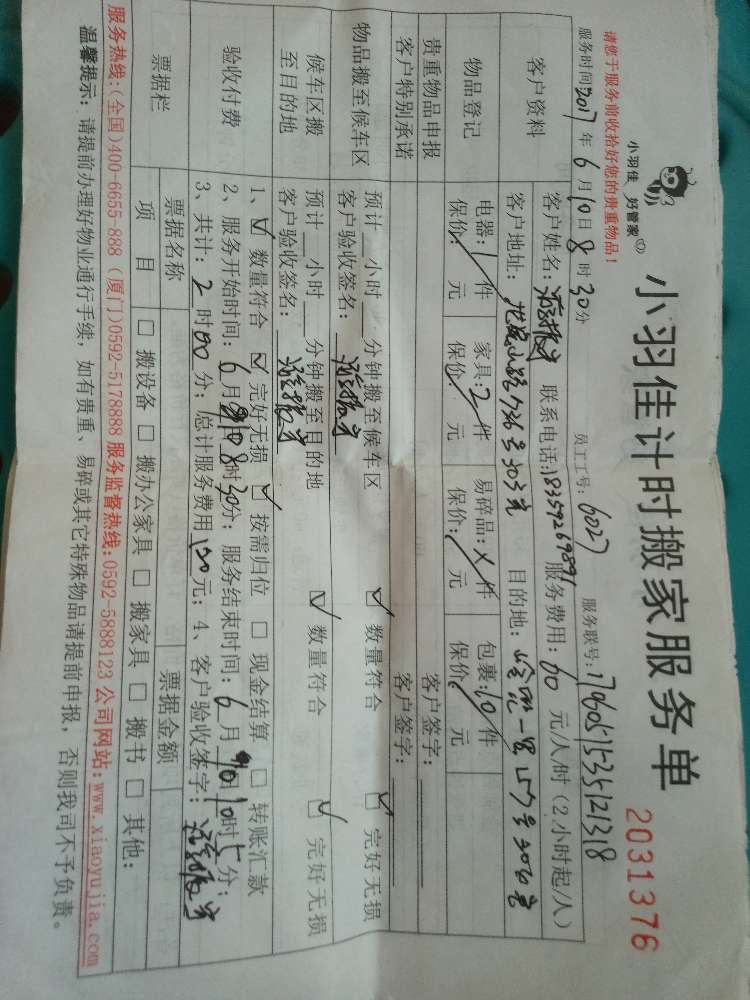 小羽佳 好管家
小羽佳计时搬家服务单
2031376
请您于服务前收拾好您的贵重物品!
服务时间2017年6月10日8时30分 员工工号:6027 服务联号:
客户资料
客户姓名: 联系电话:18359269891 服务费用:60元/人/时(2小时起/人)
客户地址: 目的地:
物品登记
电器:1件 家具:2件 易碎品:X件 包裹:10件
保价:/元 保价:/元 保价:/元 保价:/元
贵重物品申报 客户签字:
客户特别承诺 客户签字:
物品搬至候车区
预计 小时 分钟搬至候车区 ☑ 数量符合 ☑ 完好无损
客户验收签名:
候车区搬至目的地
预计 小时 分钟搬至目的地 ☑ 数量符合 ☑ 完好无损
客户验收签名:
验收付费
1、☑ 数量符合 ☑ 完好无损 ☑ 按需归位 □ 现金结算 □ 转账汇款
2、服务开始时间:6月 日8时30分;服务结束时间:6月 日10时 分;
3、共计:2时00分;总计服务费用120元;4、客户验收签字:
票据栏
票据名称 票据金额
项目 □ 搬设备 □ 搬办公家具 □ 搬家具 □ 搬书 □ 其他:
服务热线:(全国)400-6655-888 (厦门)0592-5178888 服务监督热线:0592-5888123 公司网站:www.xiaoyujia.com
温馨提示:请提前办理好物业通行手续,如有贵重、易碎或其它特殊物品请提前申报,否则我司不予负责。